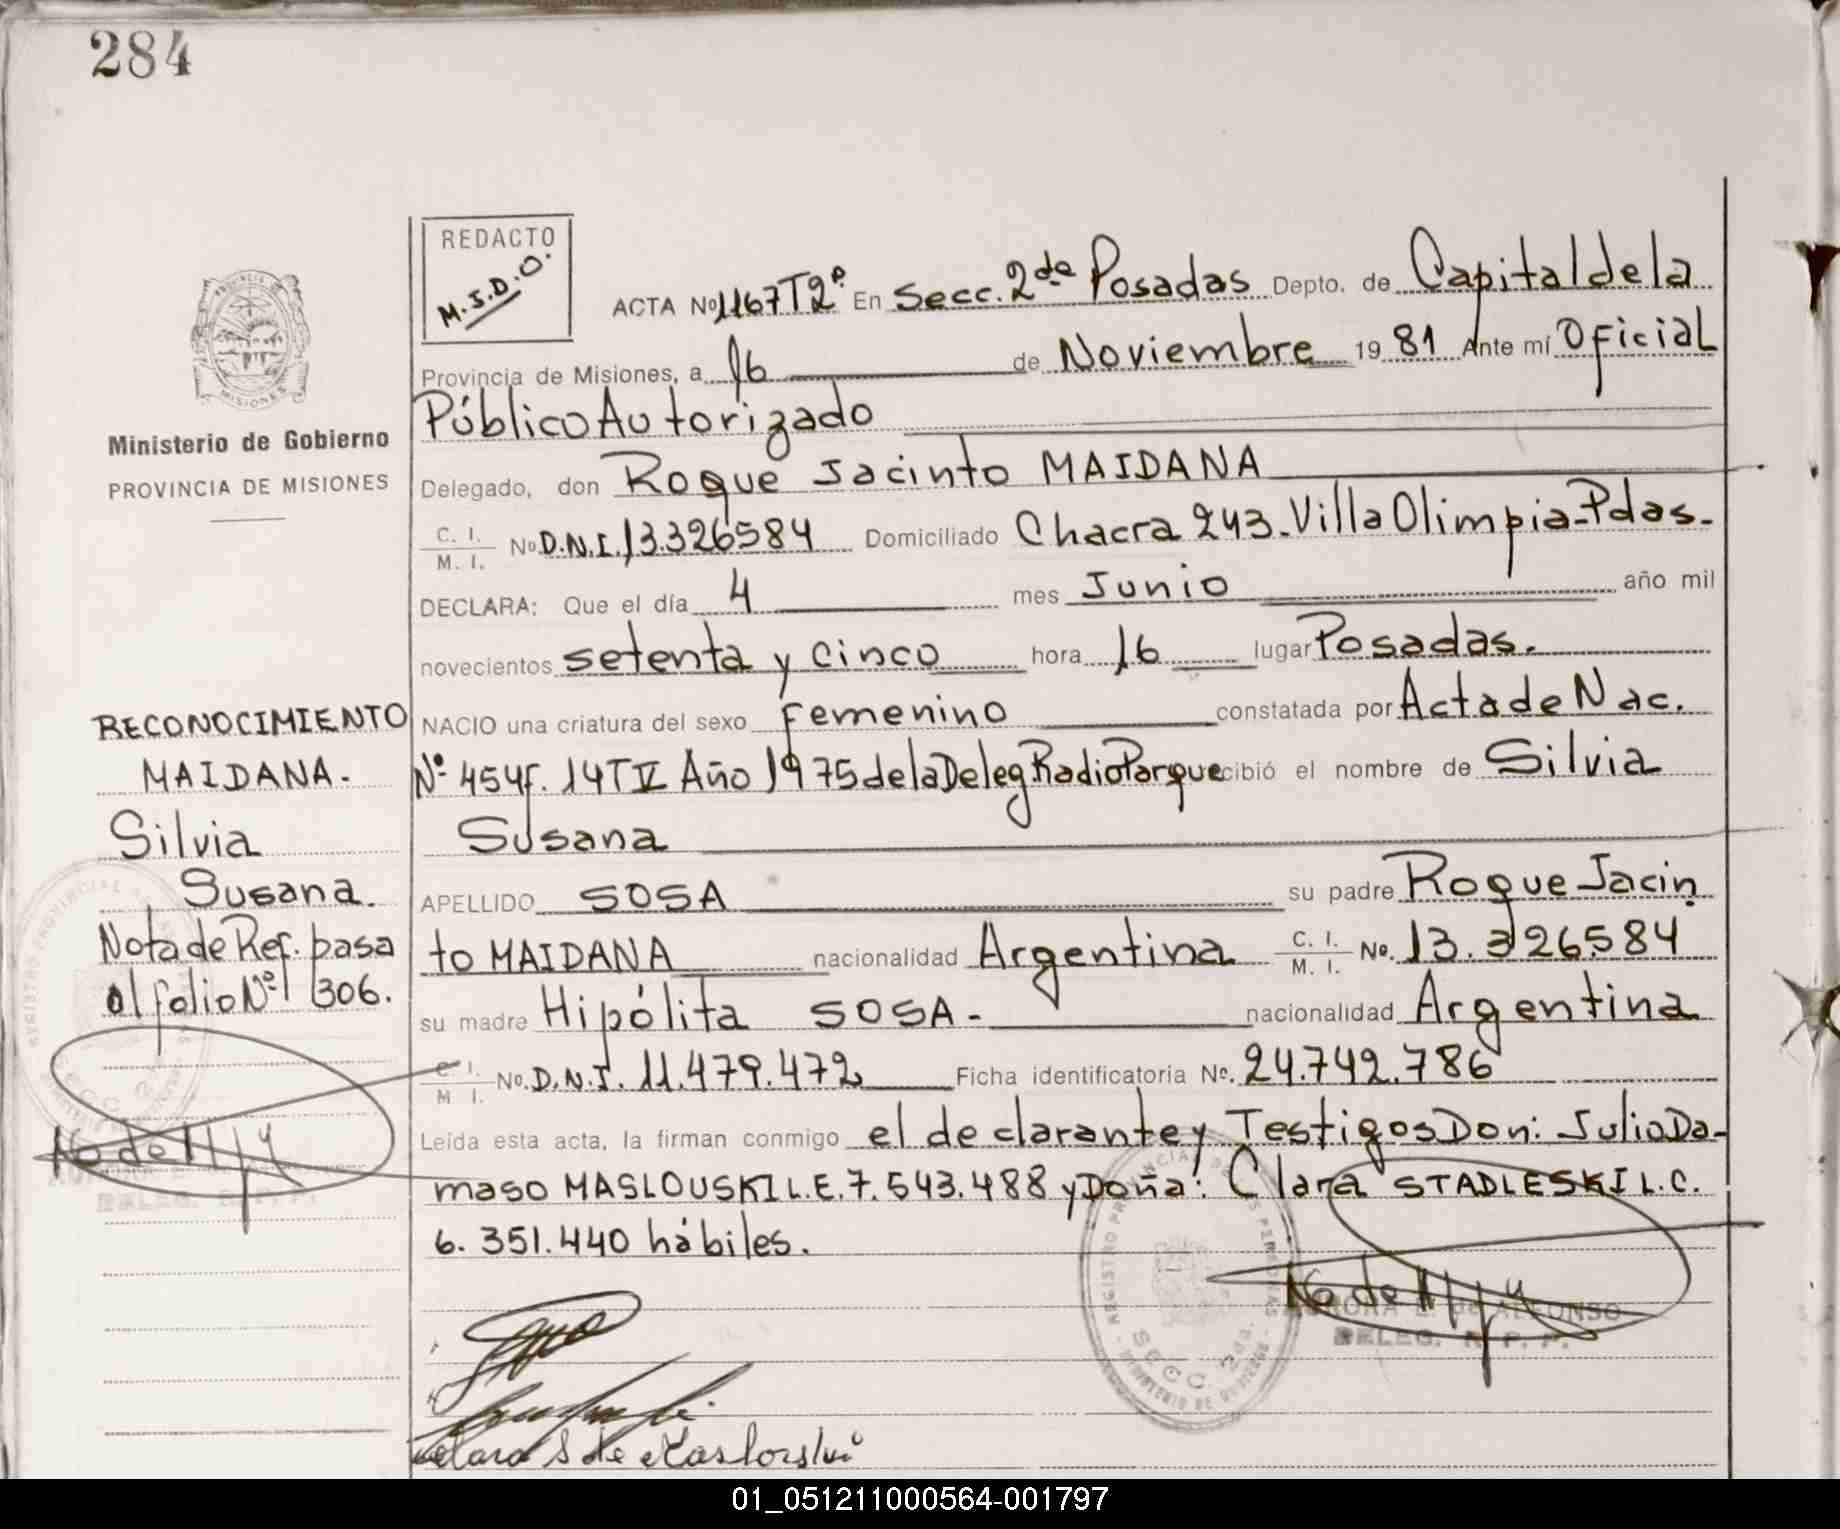 284
REDACTO
M.J.D.O.
ACTA Nº 1167 T2º En Secc. 2da Posadas Depto. de Capital de la
Provincia de Misiones, a 16 de Noviembre 1981 Ante mí Oficial
Público Autorizado
Delegado, don Roque Jacinto MAIDANA
C. I. / M. I. No D.N.I. 13.326584 Domiciliado Chacra 243. Villa Olimpia-Pdas.
DECLARA: Que el día 4 mes Junio año mil
novecientos setenta y cinco hora 16 lugar Posadas.
NACIO una criatura del sexo femenino constatada por Acta de Nac.
Nº 454 f. 14 T IV Año 1975 de la Deleg Radio Parque cibió el nombre de Silvia
Susana
APELLIDO SOSA su padre Roque Jacin
to MAIDANA nacionalidad Argentina C. I. / M. I. No. 13.326.584
su madre Hipólita SOSA- nacionalidad Argentina
C. I. / M. I. No. D.N.I. 11.479.472 Ficha identificatoria No. 24.742.786
Leída esta acta, la firman conmigo el declarante y Testigos Don: Julio Da-
maso MASLOUSKI L.E. 7.543.488 y Doña: Clara STADLESKI L.C.
6.351.440 hábiles.
Ministerio de Gobierno
PROVINCIA DE MISIONES
RECONOCIMIENTO
MAIDANA.
Silvia
Susana.
Nota de Ref. pasa
al folio Nº 306.
AURORA E. de ALFONSO
DELEG. R. P. P.
SECC. 2da.
01_051211000564-001797